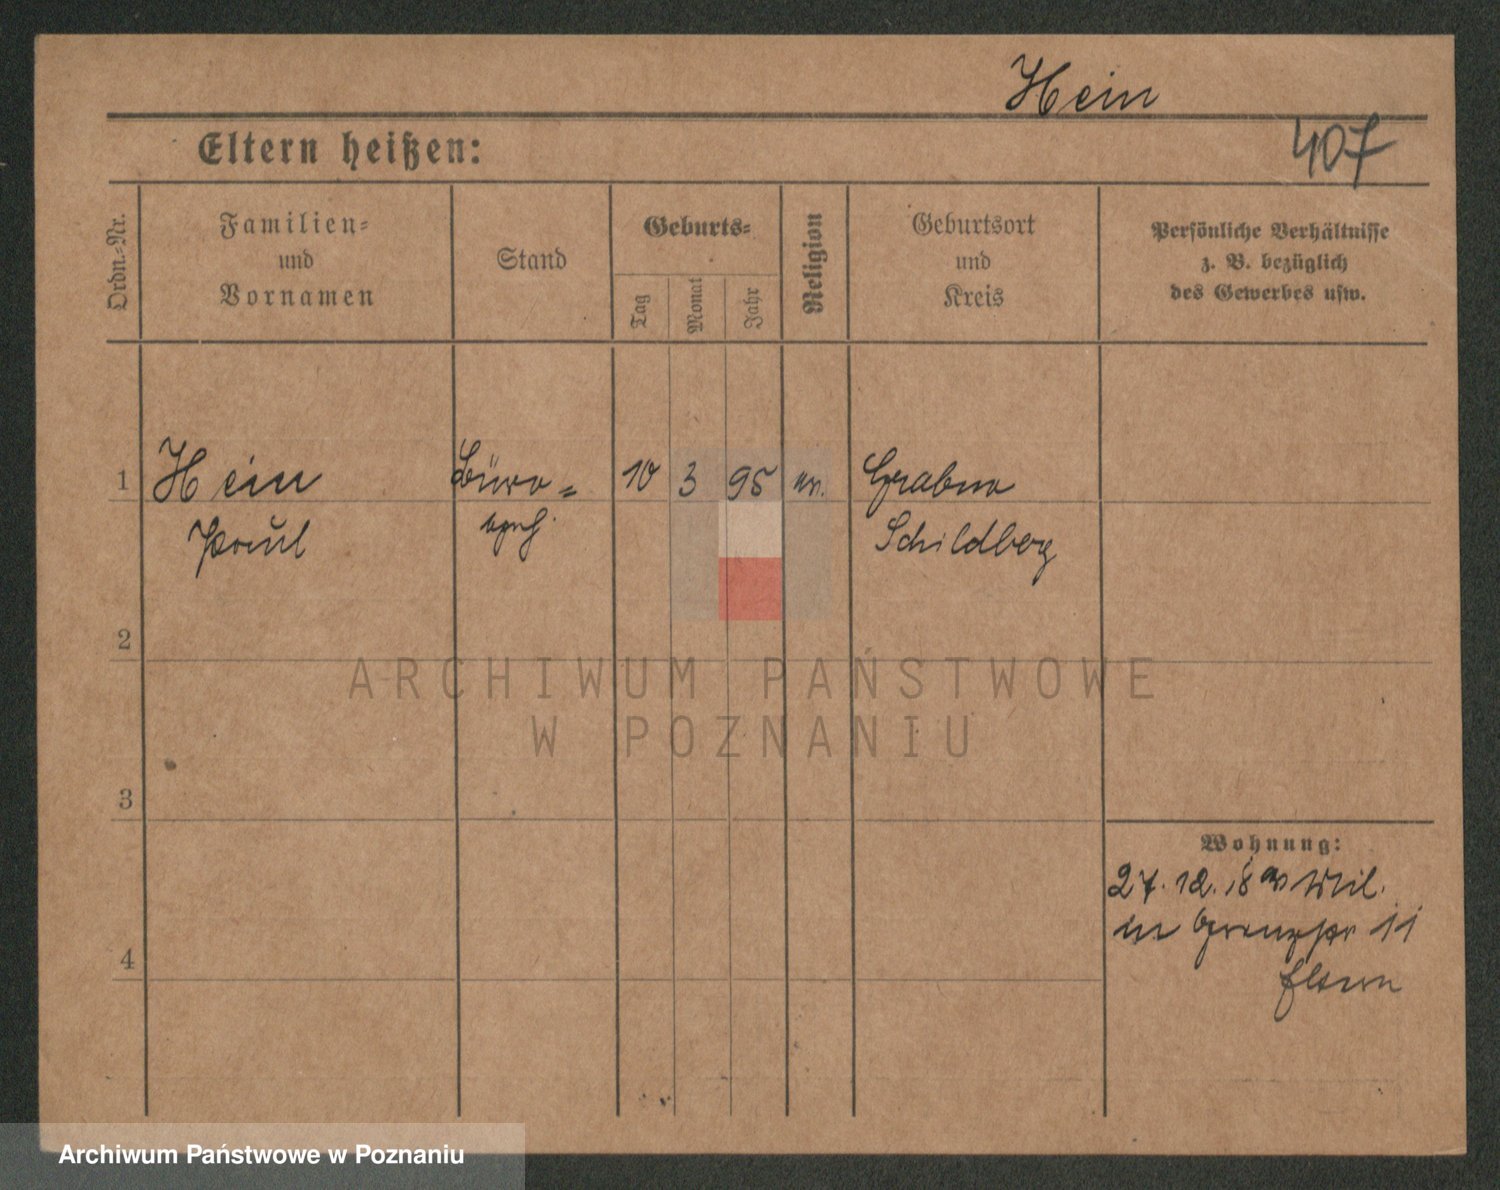 Hein
407
Eltern heißen:
Ordn.-Nr.
Familien-
und
Vornamen
Stand
Geburts-
Tag
Monat
Jahr
Religion
Geburtsort
und
Kreis
Persönliche Verhältnisse
z. B. bezüglich
des Gewerbes usw.
1 Hein Büro- 10 3 95 ev. Grabow
Paul Schildberg
2
ARCHIWUM PAŃSTWOWE
W POZNANIU
3
Wohnung:
27.12.18 Mil.
in 11
4
Eltern
Archiwum Państwowe w Poznaniu